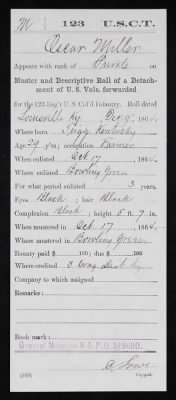 M 123 U.S.C.T.
Oscar Miller
Appears with rank of Private on
Muster and Descriptive Roll of a Detachment
of U. S. Vols. forwarded
for the 123 Reg't U.S. Col'd Infantry. Roll dated
Louisville Ky, Dec 9, 1864.
Where born Trigg Kentucky
Age 29 y'rs; occupation Farmer
When enlisted Oct 17, 1864.
Where enlisted Bowling Green
For what period enlisted 3 years.
Eyes Black; hair Black
Complexion Black; height 5 ft. 7 in.
When mustered in Oct 17, 1864.
Where mustered in Bowling Green
Bounty paid $ 100; due $ 100
Where credited 3 Cong. Dist. Ky.
Company to which assigned
Remarks:
Book mark:
General Notation R & P O
(339) Copyist.